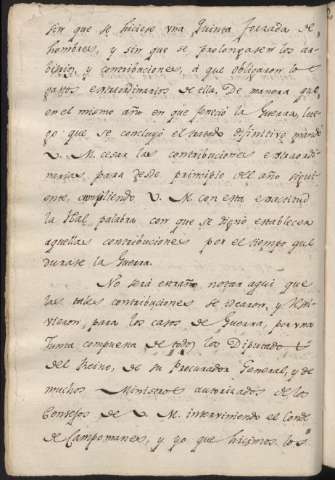 sin que se hiciese vna quinta forzada de
hombres, y sin que se prolongasen los ar-
bitrios, y contribuciones, á que obligaron los
gastos extraordinarios de ella. De manera que
en el mismo año en que feneció la Guerra, lue-
go que se concluyó el tratado difinitivo mandó
V. M. cesar las contribuciones extraordi-
narias, para desde principio del año sigui-
ente, cumpliendo V. M. con esta exactitud
la Real palabra con que se dignó establecer
aquellas contribuciones por el tiempo que
durase la Guerra.
No será extraño notar aqui que
las tales contribuciones se crearon, y
para los casos de Guerra, por vna
Junta compuesta de todos los Diputados
del Reino, de su Procurador General, y de
muchos Ministros autorizados de los
Consejos de V. M. interviniendo el Conde
de Campomanes, y yo que hicimos los